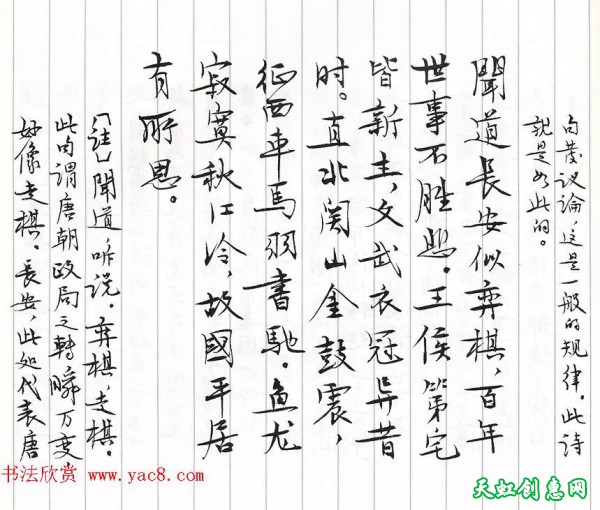 句发议论，这是一般的规律。此诗
就是如此的。
聞道長安似弈棋，百年
世事不胜悲。王侯第宅
皆新主，文武衣冠异昔
时。直北関山金鼓震，
征西車馬羽書馳。鱼龙
寂寞秋江冷，故國平居
有所思。
〔註〕聞道，听说。弈棋，走棋。
此句谓唐朝政局之转瞬万变，
好像走棋。長安，此处代表唐
书法欣赏 www.yac8.com
天虹创惠网